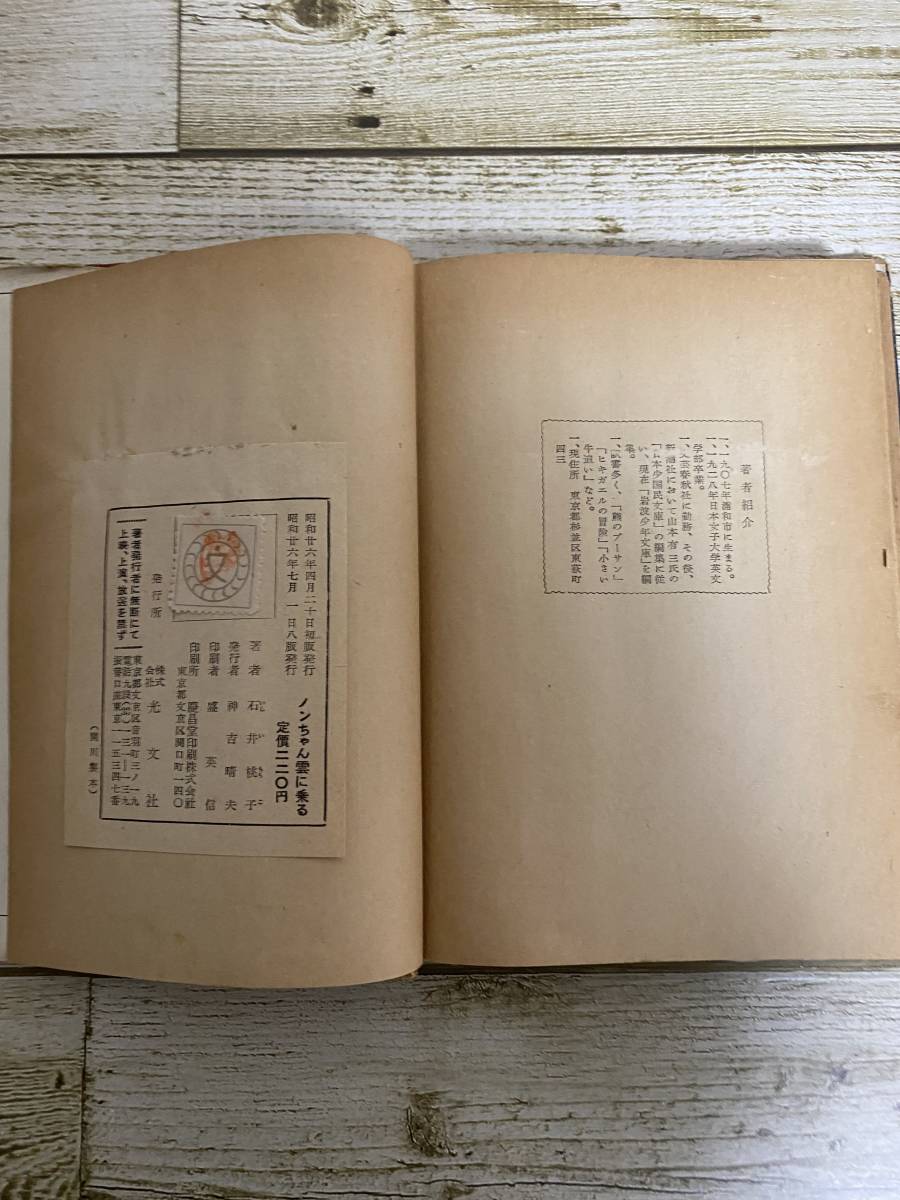 著者紹介
一、一九〇七年浦和市に生まる。
一、一九二八年日本女子大学英文
学部卒業。
一、文芸春秋社に勤務、その後、
新潮社において山本有三氏の
「日本少国民文庫」の編集に従
い、現在「岩波少年文庫」を編
集。
一、訳書多く、「熊のプーサン」
「ヒキガエルの冒険」「小さい
牛追い」など。
一、現住所 東京都杉並区東荻町
四三
ノンちゃん雲に乗る
定價二二〇円
昭和廿六年四月二十日初版発行
昭和廿六年七月 一日八版発行
著者 石井桃子
発行者 神吉晴夫
印刷者 盛英信
印刷所 慶昌堂印刷株式会社
東京都文京区関口町一四〇
文
発行所 株式会社 光文社
東京都文京区音羽町三ノ一九
振替口座東京一一五三四七番
著者発行者に無断にて
上映、上演、放送を禁ず
(関川製本)